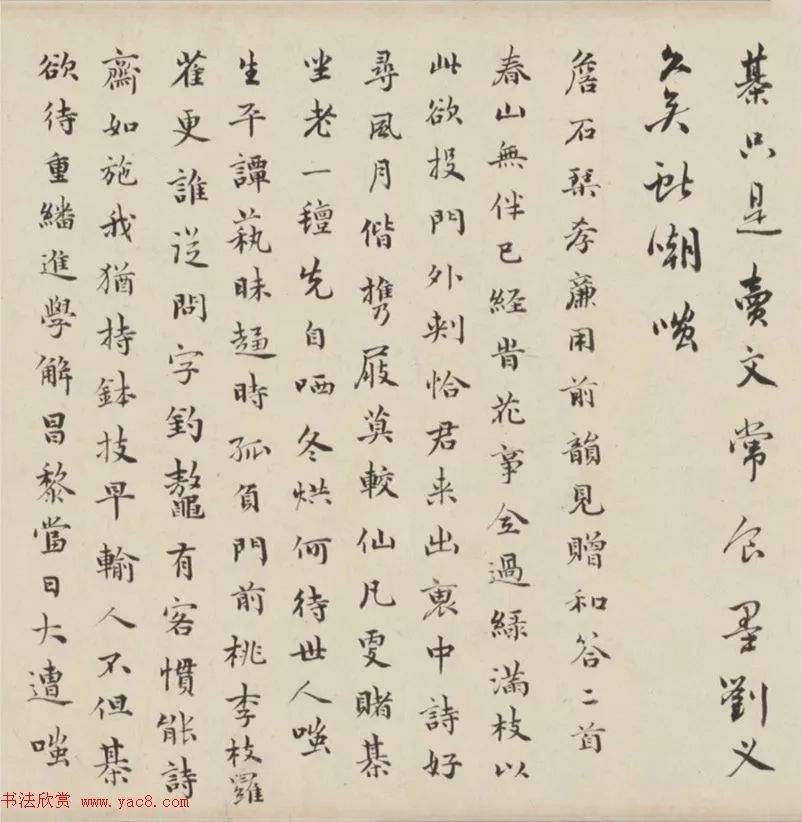 棊只是賣文常食墨劉乂
久矣嘲嗤
詹石琹孝廉用前韻見贈和答二首
春山無伴已經旹花事全過綠滿枝以
此欲投門外刺恰君来出裏中詩好
尋風月偕攜屐莫較仙凡更賭棊
坐老一氊先自哂冬烘何待世人嗤
生平譚藝昧趨時孤負門前桃李枝羅
雀更誰從問字釣鼇有客慣能詩
齋如施我猶持鉢技早輸人不但棊
欲待重繙進學解昌黎當日大遭嗤
书法欣赏 www.yac8.com